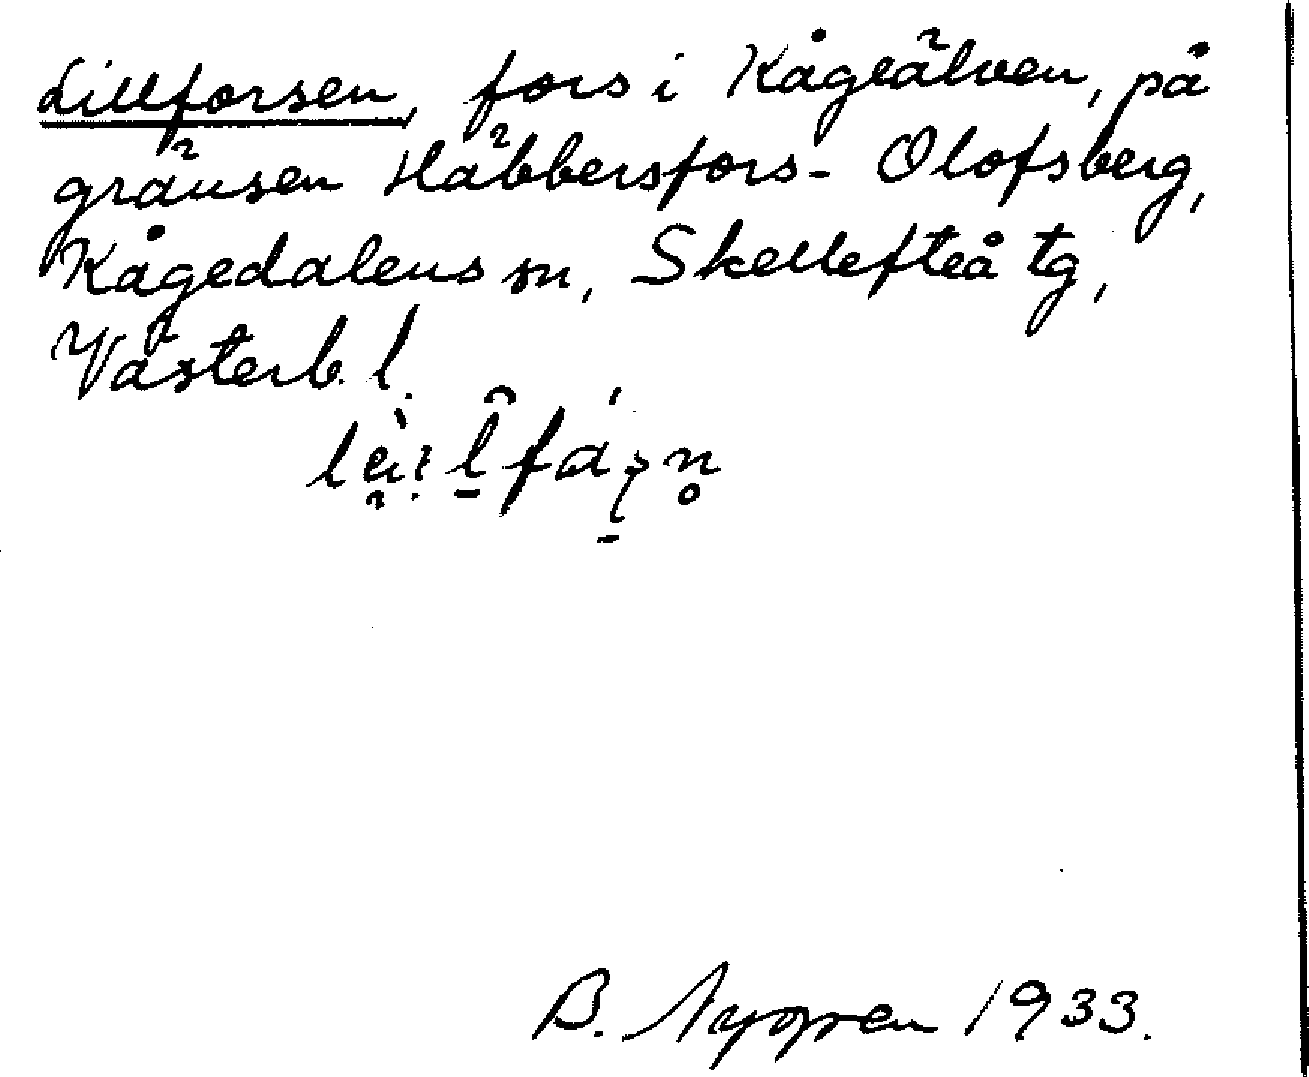 Lillforsen, fors i Kågeälven, på
gränsen Häbbersfors - Olofsberg,
Kågedalens sn, Skellefteå tg,
Västerb. l.
B. Nygren 1933.